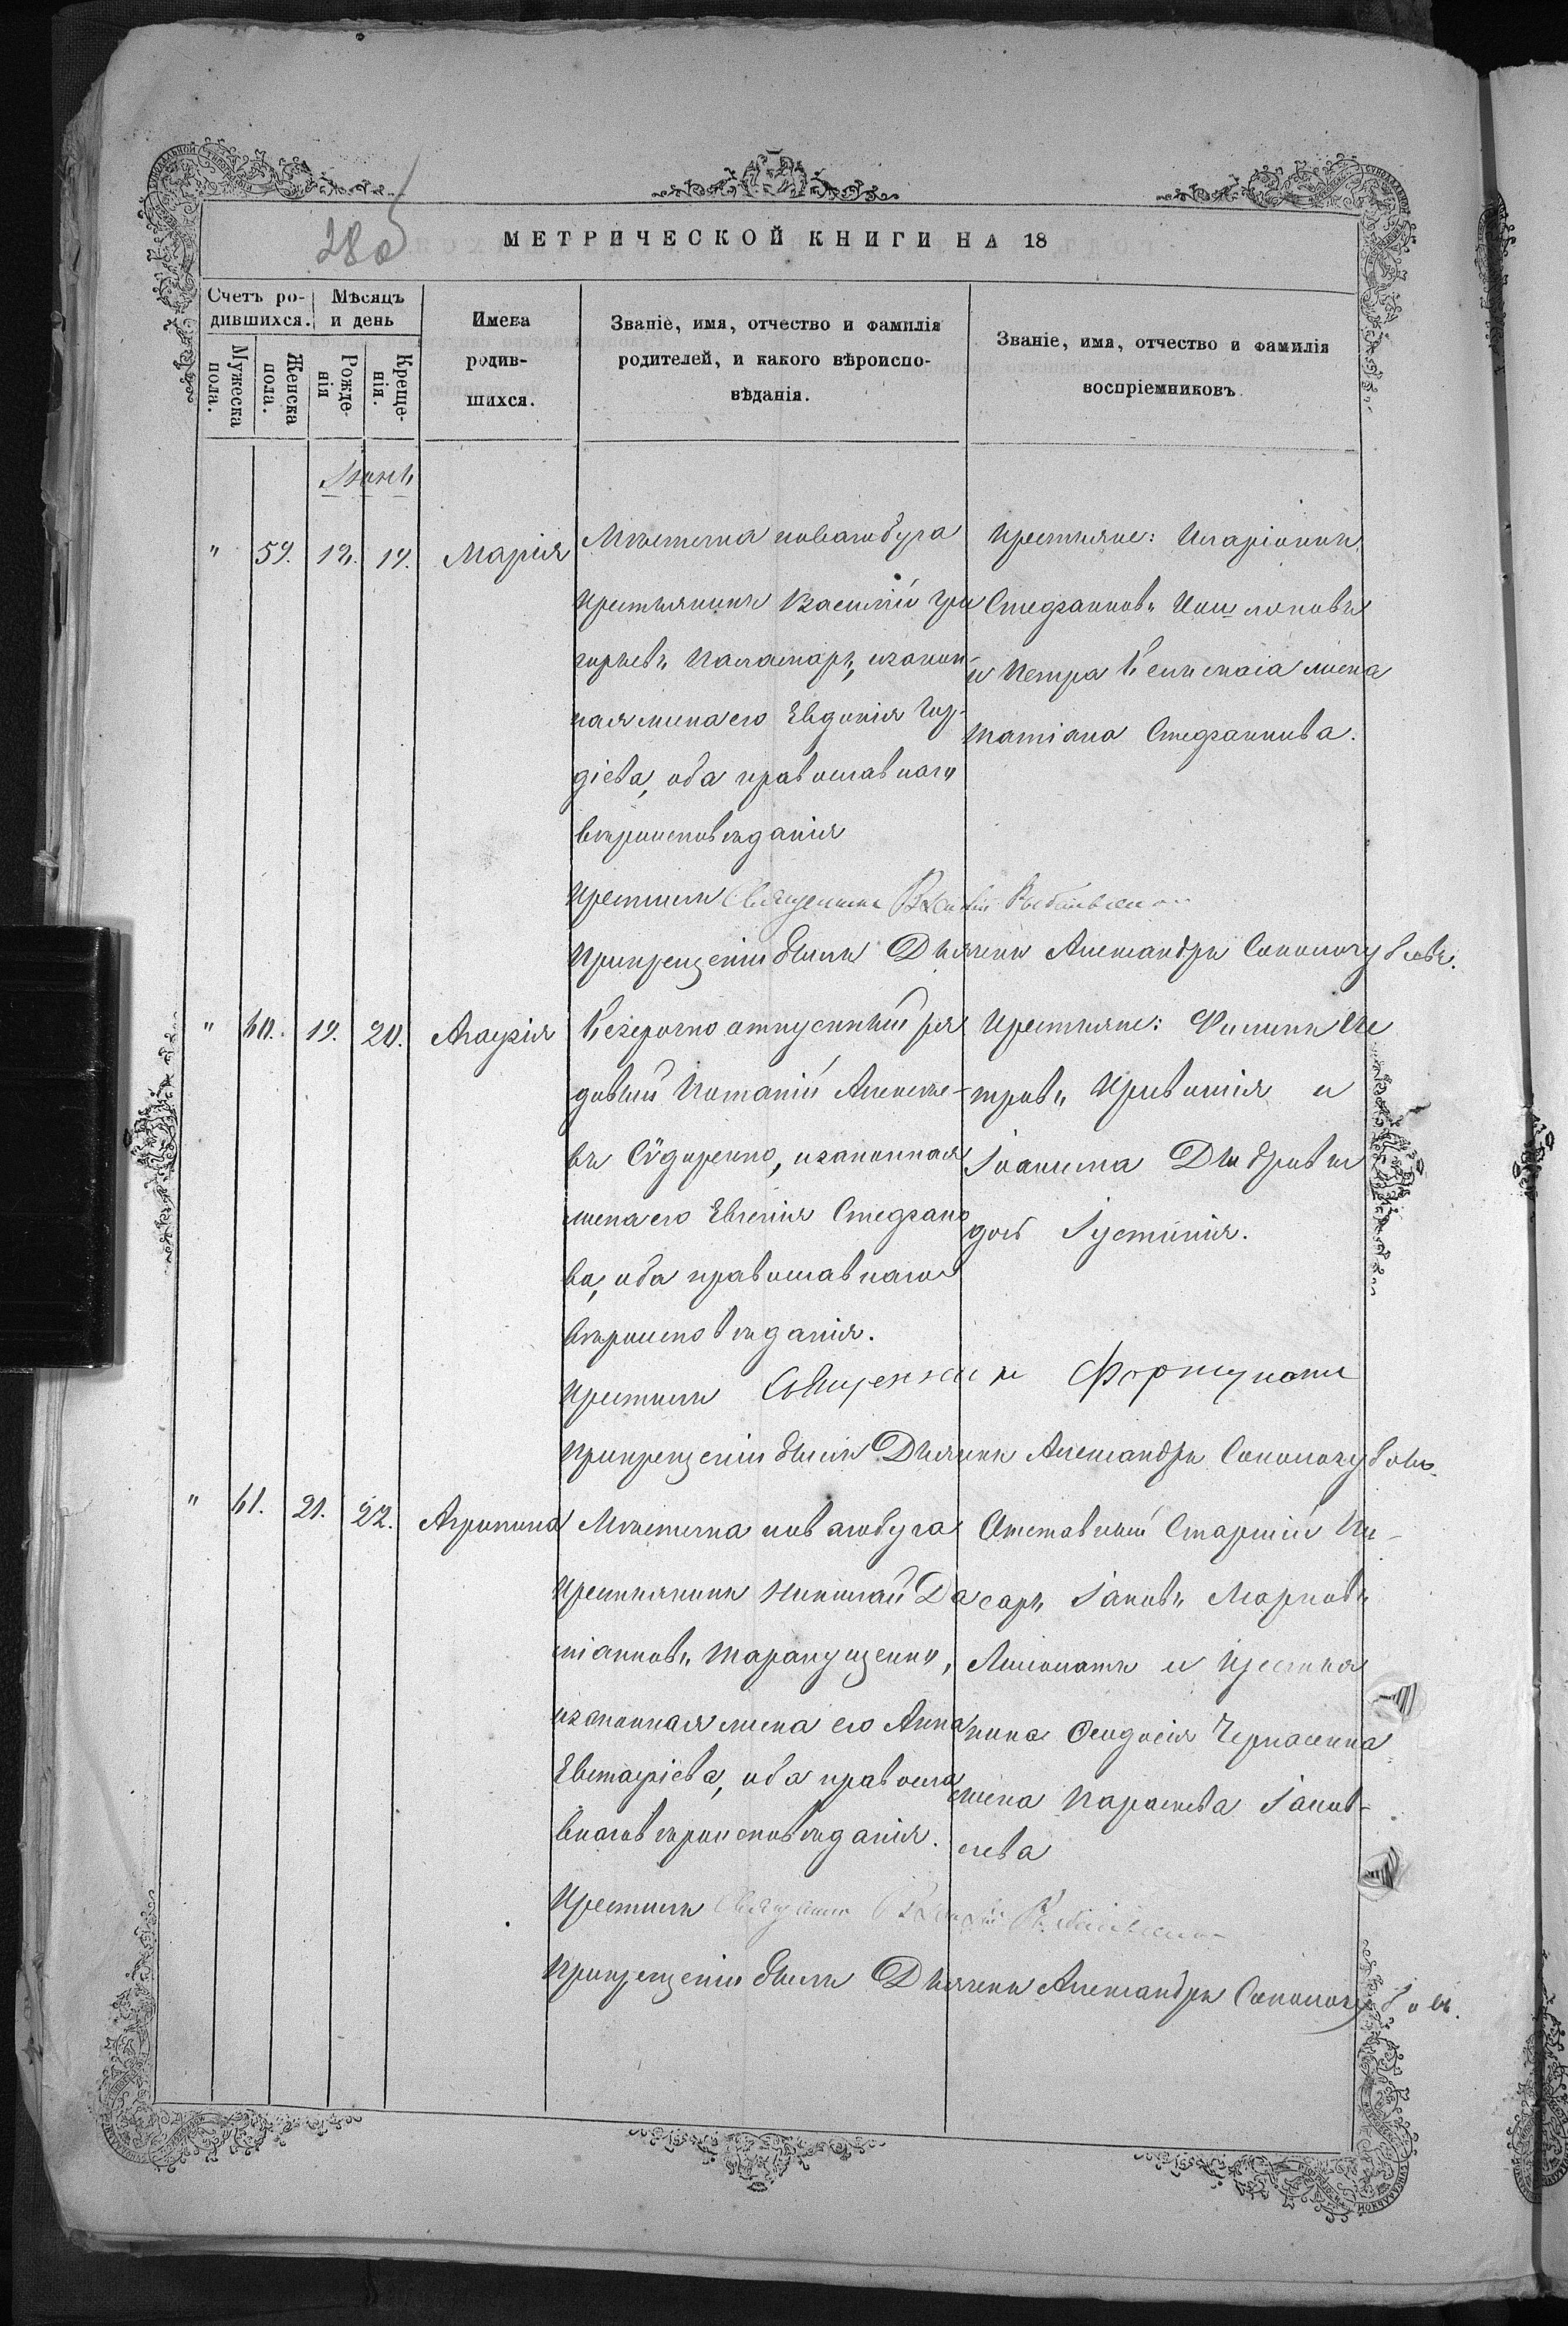 МЕТРИЧЕСКОЙ КНИГИ НА 18
Счетъ ро-
дившихся.
Мужеска
пола.
Женска
пола.
Мѣсяцъ
и день
Рожде-
нія
Креще-
нія.
Имена
родив-
шихся.
Званіе, имя, отчество и фамилія
родителей, и какого вѣроиспо-
вѣданія.
Званіе, имя, отчество и фамилія
воспріемниковъ.
" 59. 19. Марія
Мѣстечка новагобуга
крестьянинъ Василій Гри
горьевъ Паламарь, изакон-
ная жена его Евдокія Гор-
діева, оба православнаго
вѣроисповѣданія
Крестьяне: Иларіонъ
Стефановъ
и Петра жена
Татіана Стефанова.
Крестилъ Священникъ Василій
При крещеніи былъ Дьячекъ Александръ Сокологубовъ.
" 60. 19. 20. Агафія
Безсрочно отпускный ря
довый Потапій Алексѣе-
въ Сидоренко, изаконная
жена его Евгенія Стефано
ва, оба православнаго
вѣроисповѣданія.
Крестьяне: Филипъ Пе
тровъ и
Іустинія.
Крестилъ Священникъ Фортунатъ
При крещеніи былъ Дьячекъ Александръ Сокологубовъ.
" 61. 21. 22. Агрипина
Мѣстечка новагобуга
Крестьянинъ Николай Да
міановъ Таранущенко,
изаконная жена его Анна
Евстафіева, оба правосла
внаго вѣроисповѣданія.
Отставный Старшій Пи-
сарь Іаковъ Марковъ
и Крестья
нина Феодосія Черкасенка
жена Параскева Іаков-
лева
Крестилъ Священникъ Василій
При крещеніи былъ Дьячекъ Александръ Сокологубовъ.